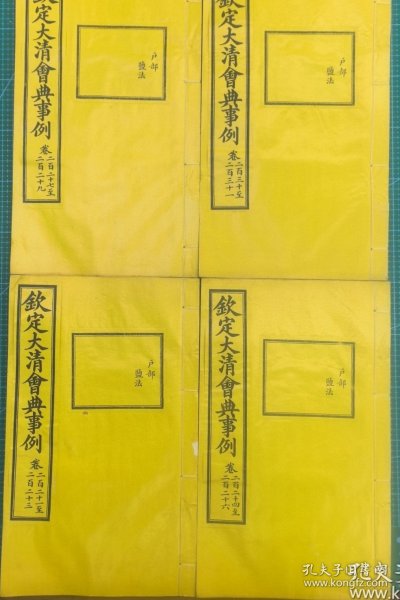 欽定大清會典事例
卷
二百二十七至
二百二十九
户部
鹽法
欽定大清會典事例
卷
二百三十至
二百三十一
户部
鹽法
欽定大清會典事例
卷
二百二十一至
二百二十三
户部
鹽法
欽定大清會典事例
卷
二百二十四至
二百二十六
户部
鹽法
孔夫子旧书网
https://www.kongfz.com